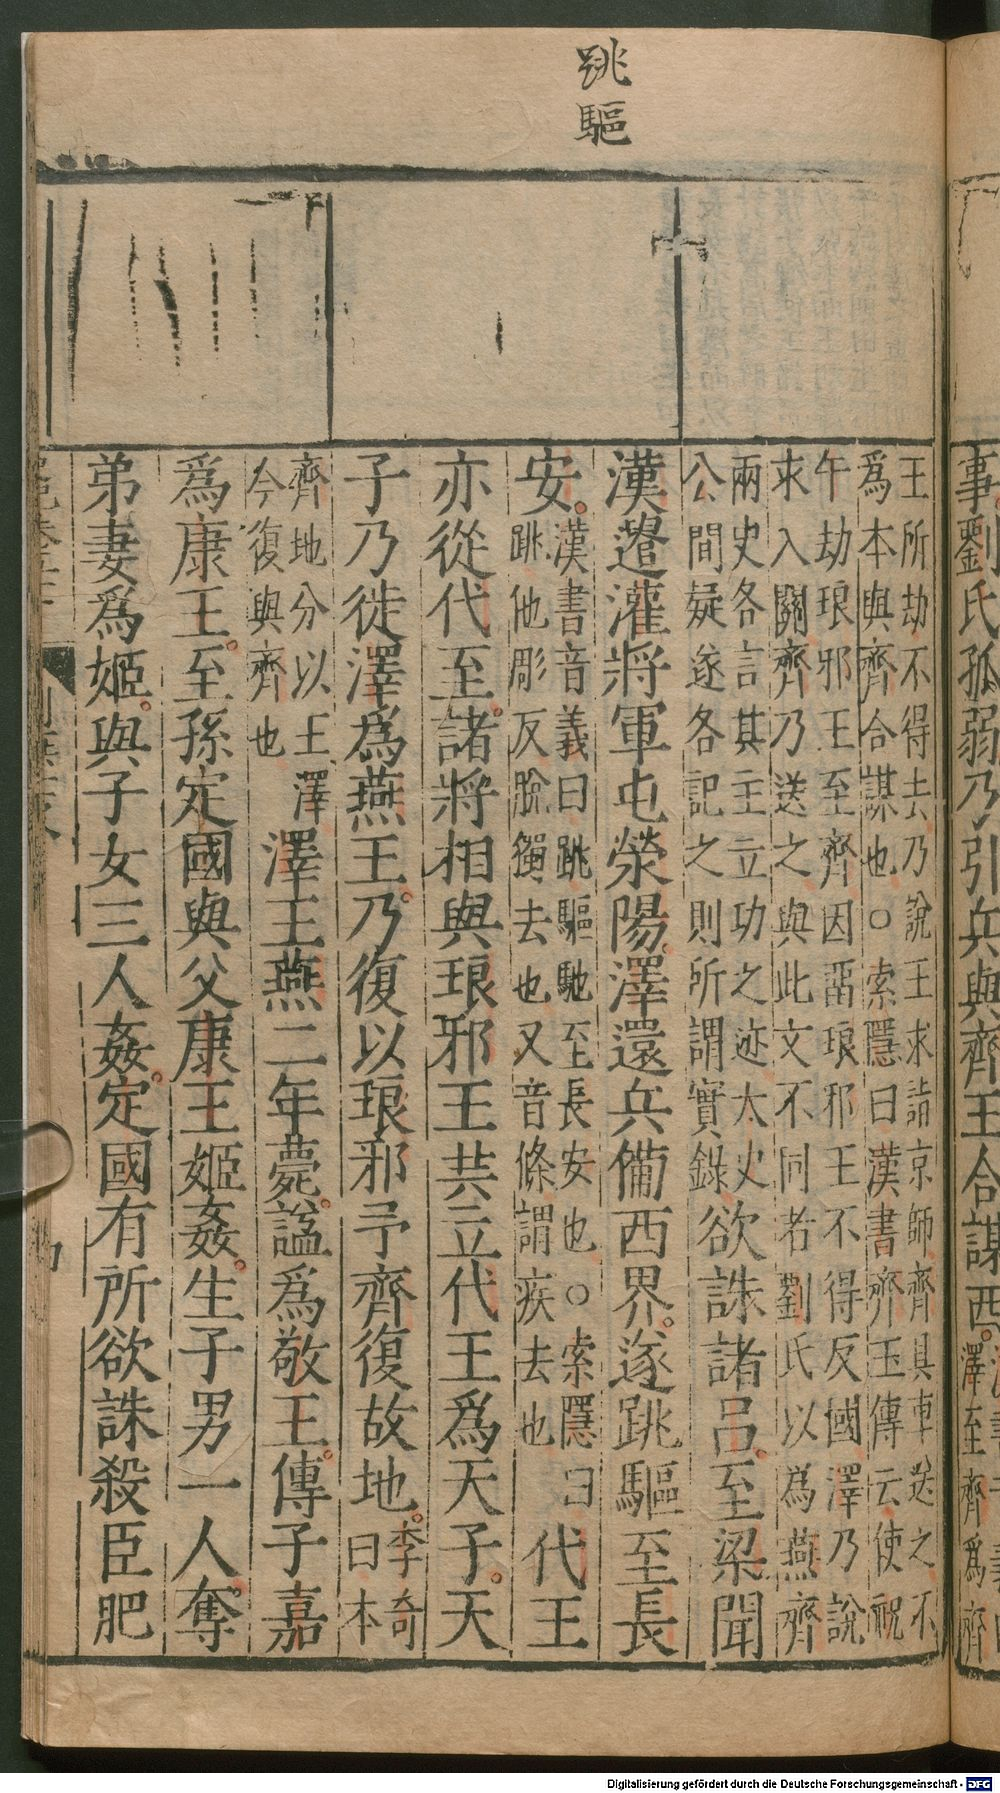 跳驅
事劉氏孤弱乃引兵與齊王合謀西。澤至齊爲齊
王所劫不得去乃說王求詣京師齊具車送之不
為本與齊合謀也○索隱曰漢書齊王傳云使祝
午劫琅邪王至齊因畱琅邪王不得反國澤乃說
求入關齊乃送之與此文不同者劉氏以為燕齊
兩史各言其主立功之迹太史
公間疑遂各記之則所謂實錄
欲誅諸呂。至梁聞
漢遣灌將軍屯滎陽。澤還兵備西界。遂跳驅至長
安。
漢書音義曰跳驅馳至長安也○索隱曰
跳他彫反脫獨去也又音條謂疾去也
代王
亦從代至。諸將相與琅邪王共立代王爲天子。天
子乃徙澤爲燕王。乃復以琅邪予齊復故地。
李奇
曰本
齊地分以王澤
今復與齊也
澤王燕二年薨。謚爲敬王。傳子嘉
爲康王。至孫定國與父康王姬姦。生子男一人。奪
弟妻爲姬。與子女三人姦。定國有所欲誅殺臣肥
Digitalisierung gefördert durch die Deutsche Forschungsgemeinschaft - DFG